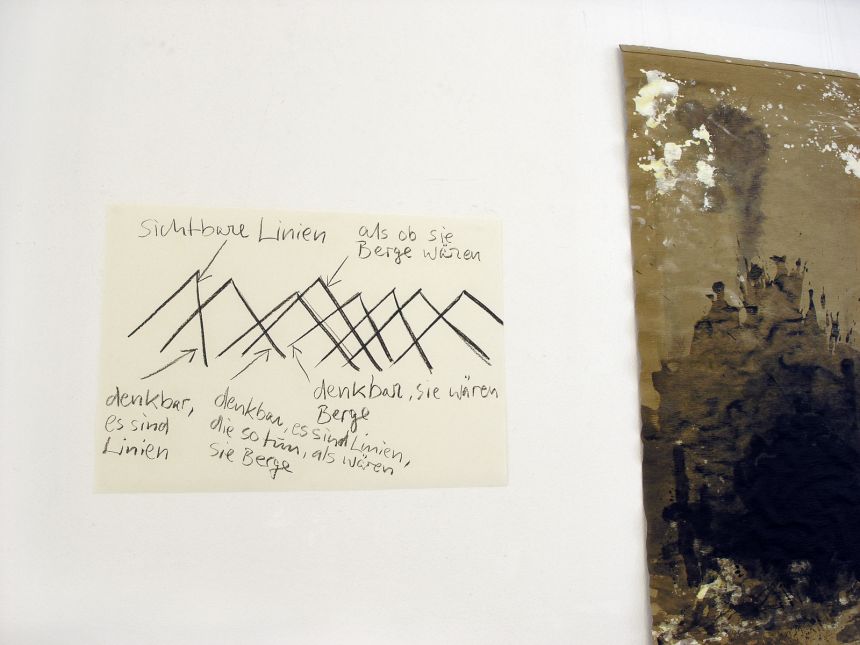 sichtbare Linien
als ob sie
Berge wären
denkbar,
es sind
Linien
denkbar, es sind Linien,
die so tun, als wären
sie Berge
denkbar, sie wären
Berge